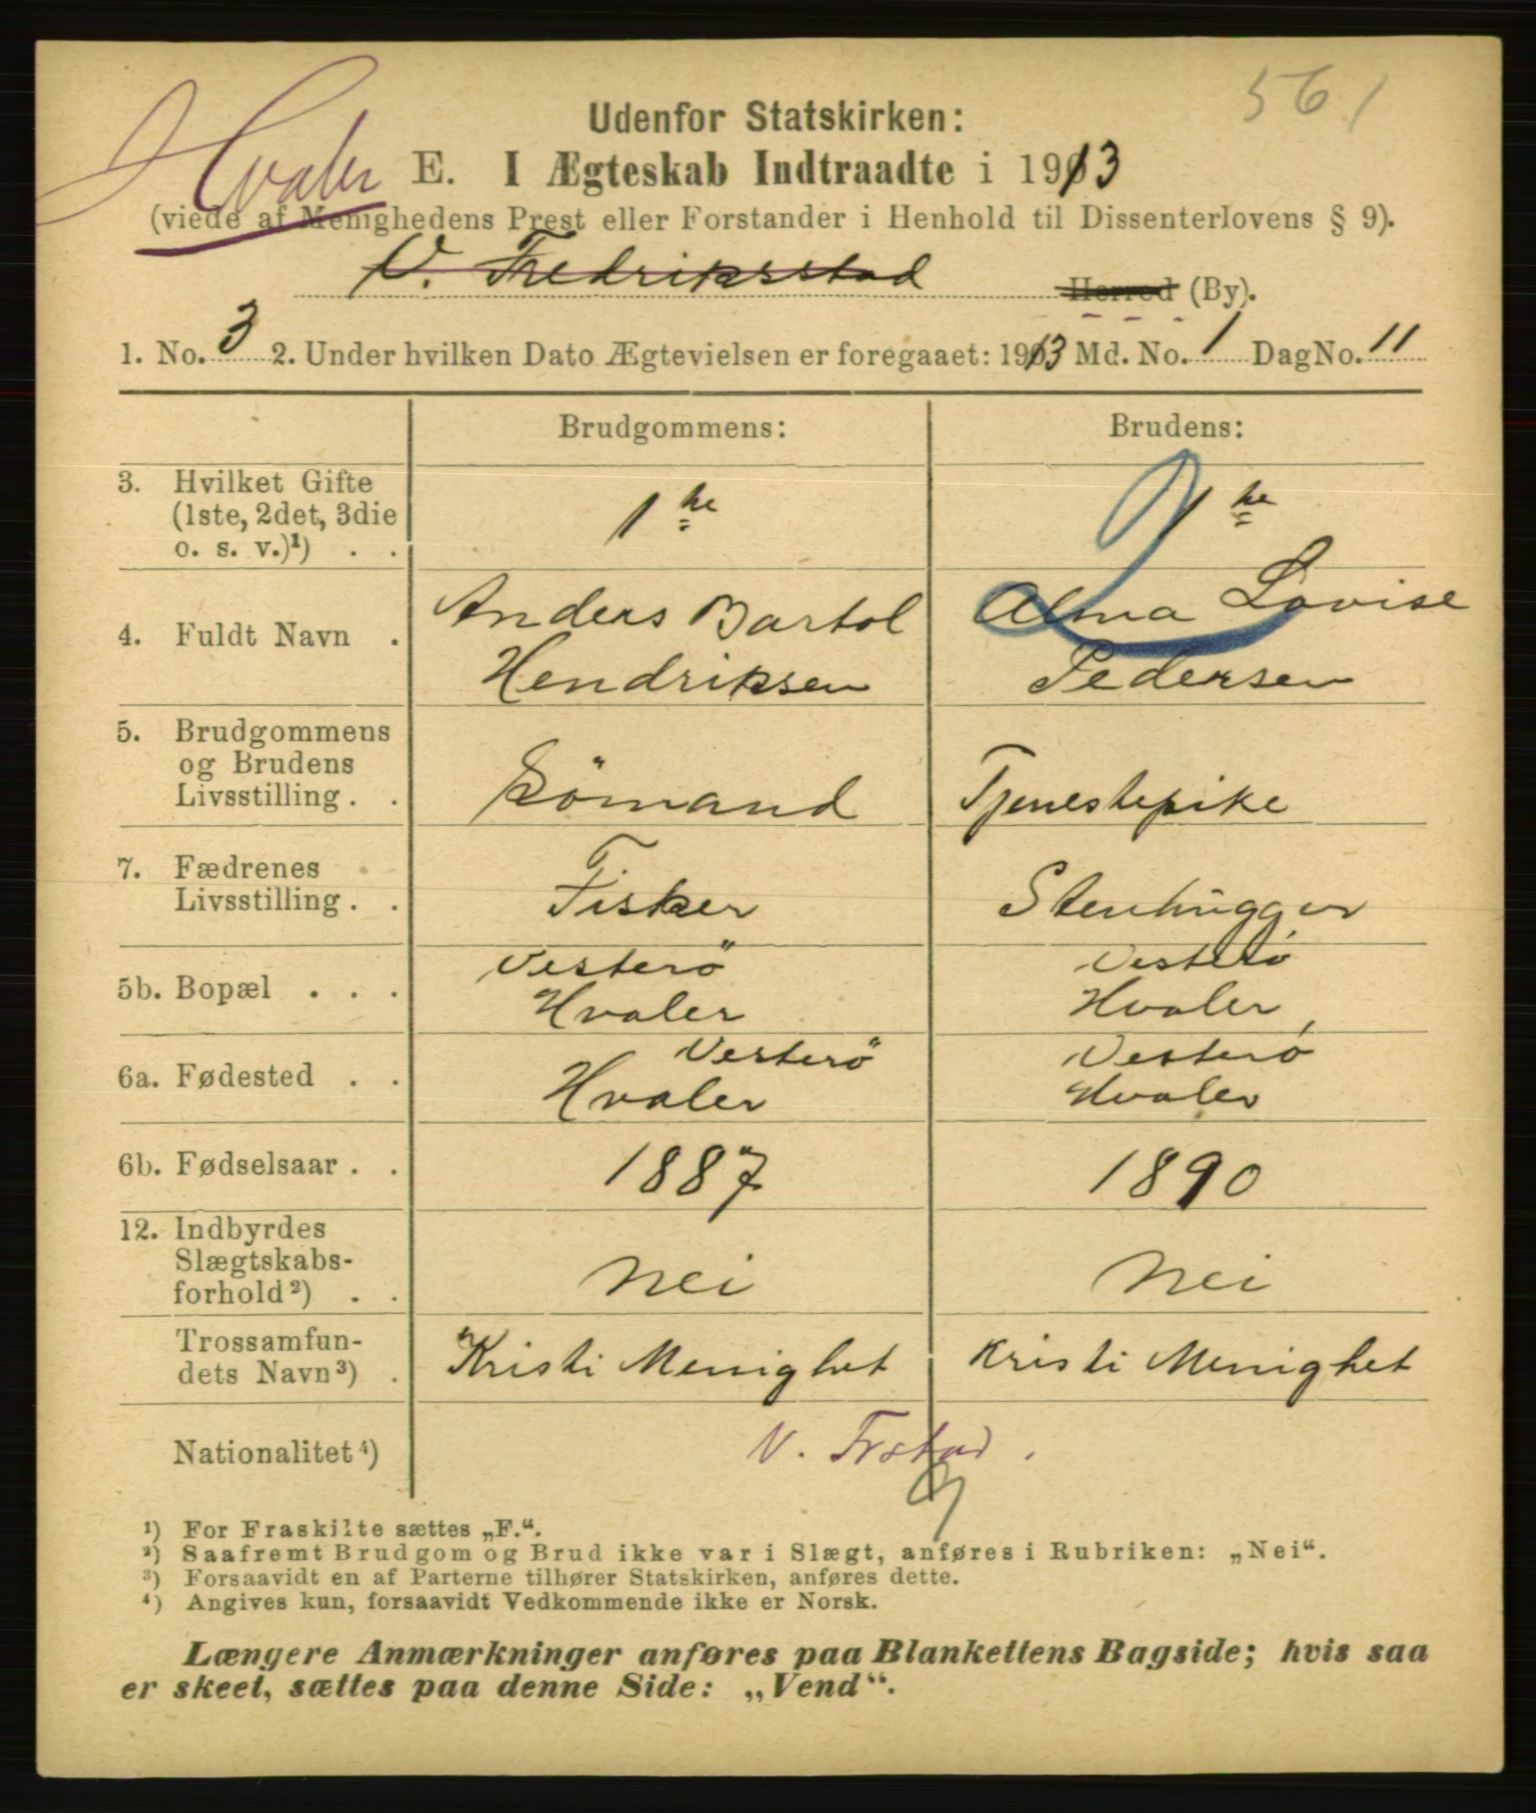 561
Udenfor Statskirken:
Hvaler E. I Ægteskab Indtraadte i 1913
(viede af Menighedens Prest eller Forstander i Henhold til Dissenterlovens § 9).
V. Fredriksstad Herred (By).
1. No. 3 2. Under hvilken Dato Ægtevielsen er foregaaet: 1913 Md. No. 1 Dag No. 11
Brudgommens: Brudens:
3. Hvilket Gifte
(1ste, 2det, 3die 1he 1he
o. s. v.)¹) . .
Anders Bartol Alma Lovise
4. Fuldt Navn .
Hendriksen Pedersen
5. Brudgommens
og Brudens
Livsstilling . . Sömand Tjenestepike
7. Fædrenes
Livsstilling . . Fisker Stenhugger
Vesterö Vesterö
5b. Bopæl . . .
Hvaler Hvaler
Vesterö Vesterö
6a. Fødested . .
Hvaler Hvaler
6b. Fødselsaar . . 1887 1890
12. Indbyrdes
Slægtskabs-
forhold²) . . Nei Nei
Trossamfun-
dets Navn³) . Kristi Menighet Kristi Menighet
Nationalitet⁴) V. Frstad.
¹) For Fraskilte sættes „F.“.
²) Saafremt Brudgom og Brud ikke var i Slægt, anføres i Rubriken: „Nei“.
³) Forsaavidt en af Parterne tilhører Statskirken, anføres dette.
⁴) Angives kun, forsaavidt Vedkommende ikke er Norsk.
Længere Anmærkninger anføres paa Blankettens Bagside; hvis saa
er skeet, sættes paa denne Side: „Vend“.